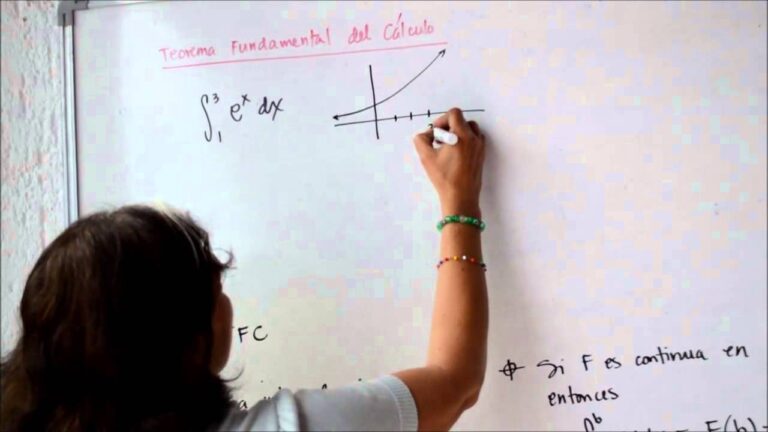 Teorema Fundamental del Cálculo
∫₁³ eˣ dx
FC
Si F es continua en
entonces
b
F(b)-